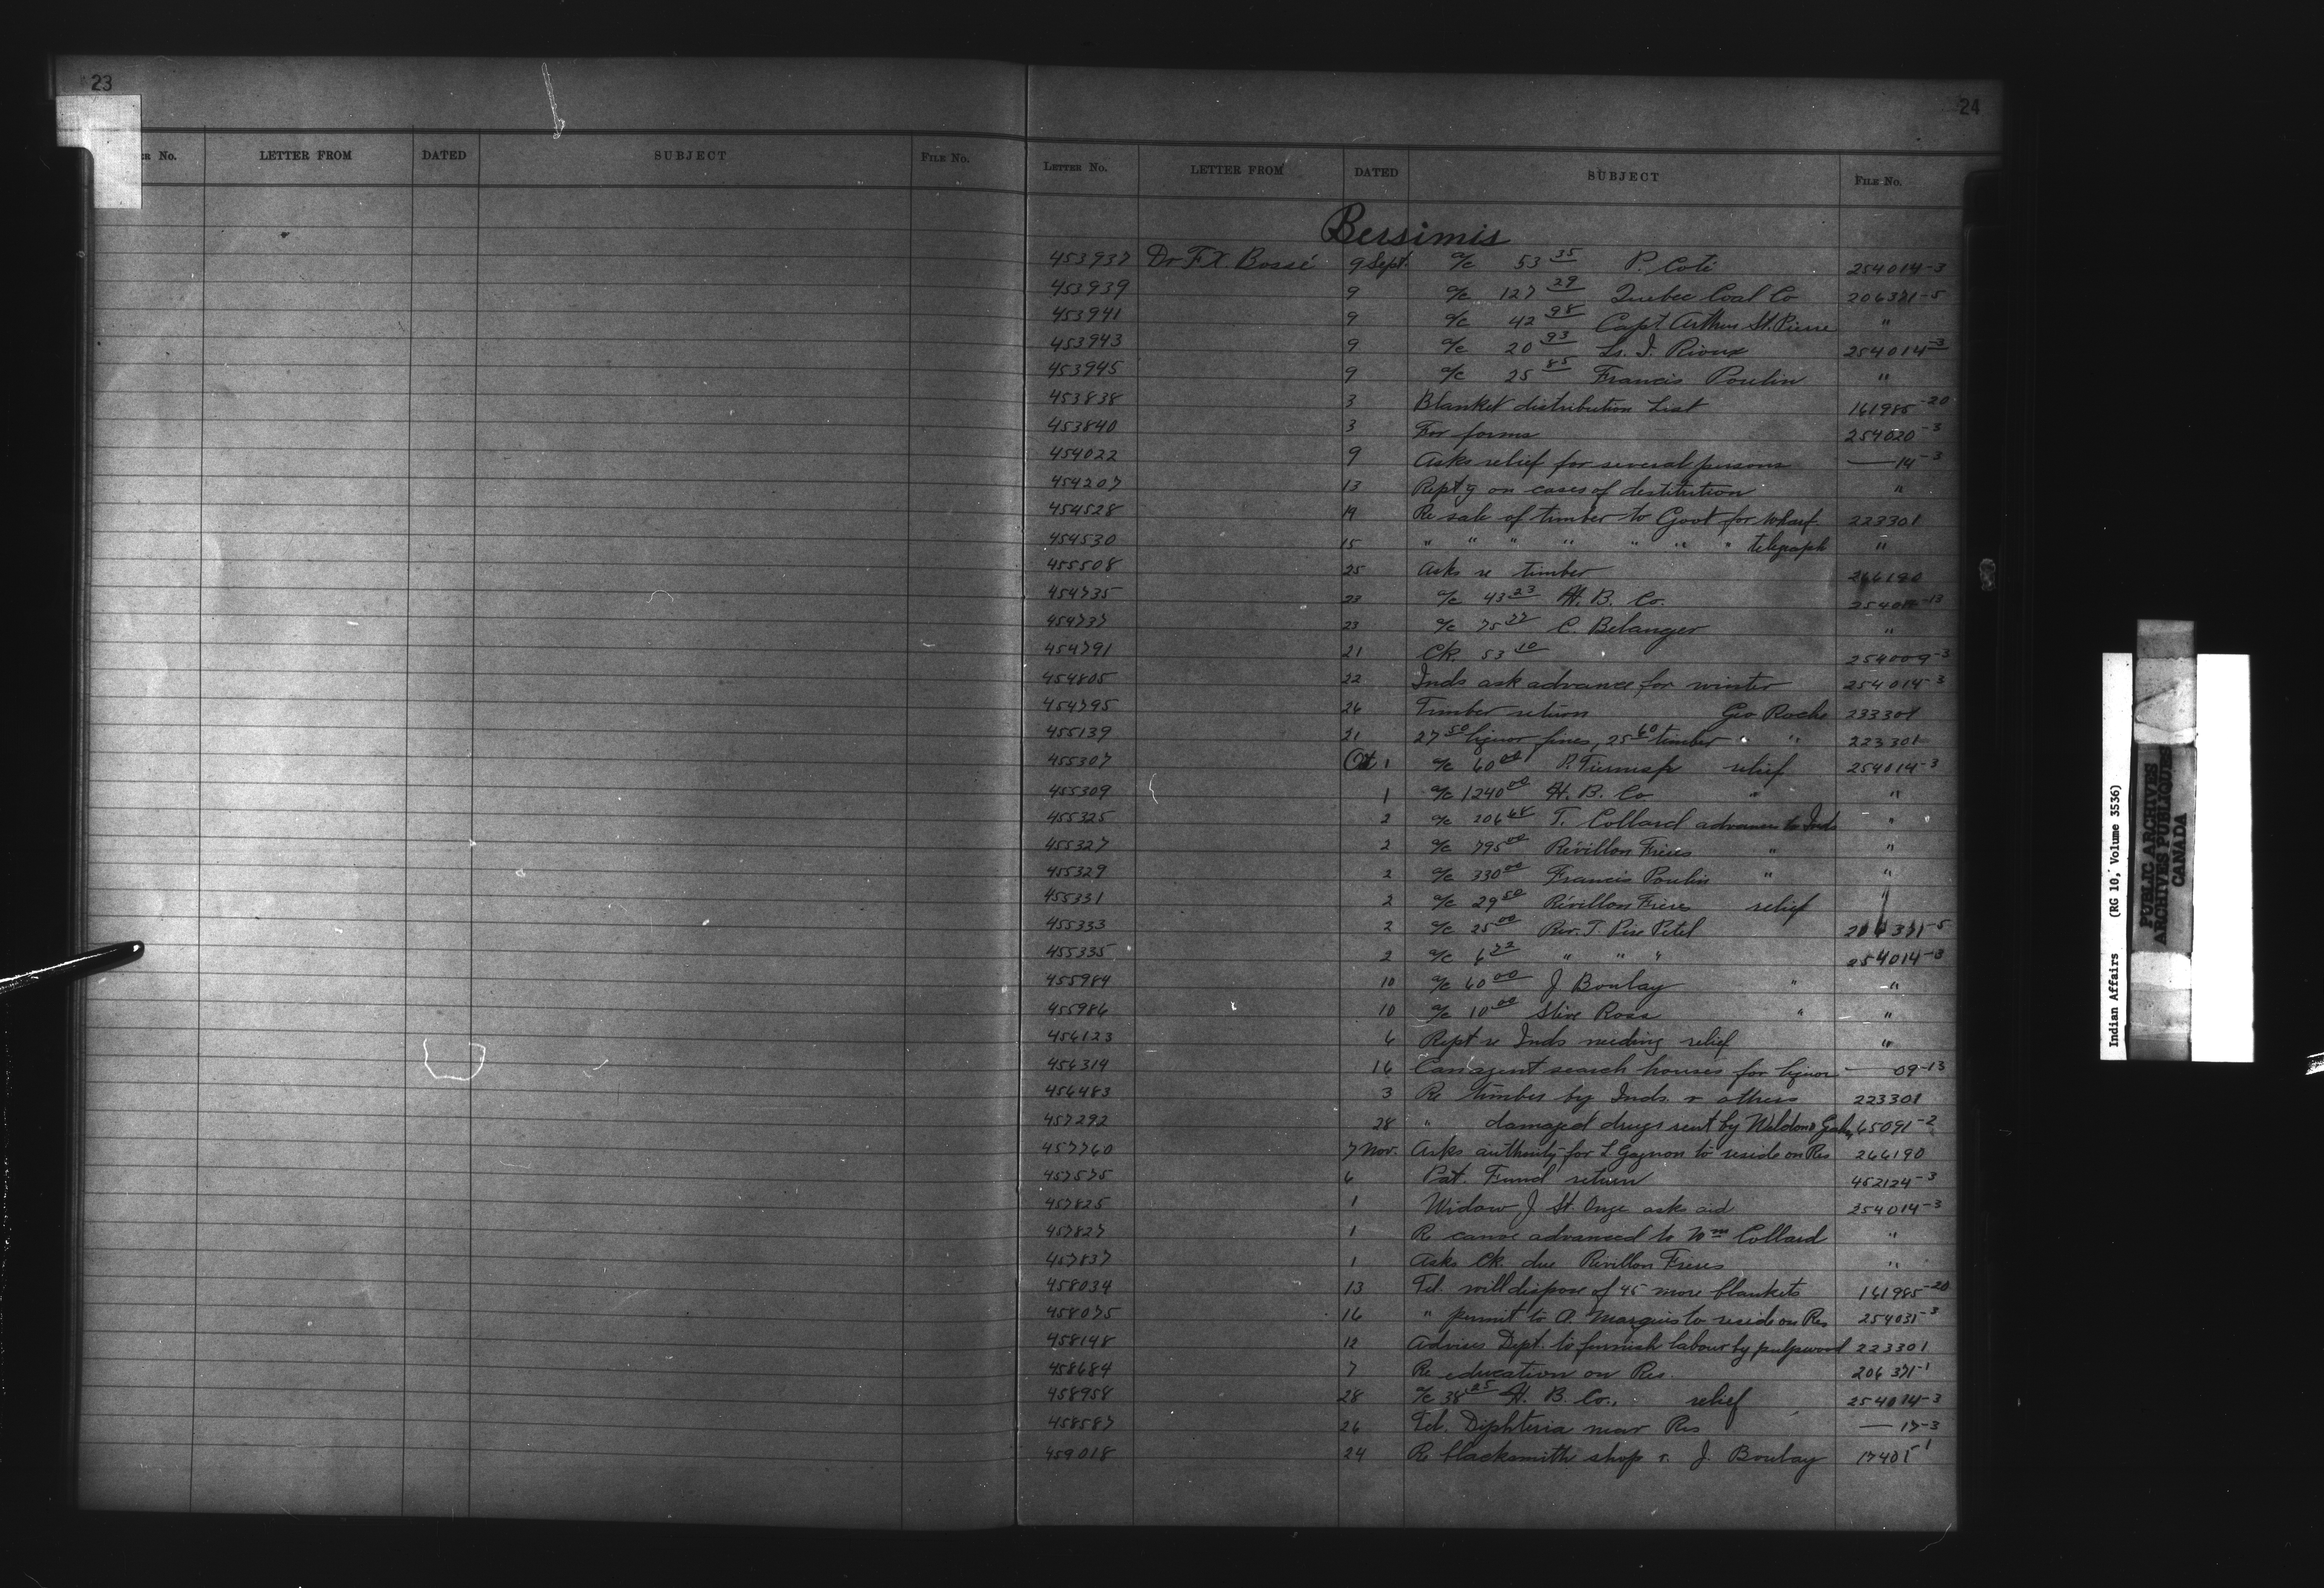 23
24
ER No. LETTER FROM DATED SUBJECT FILE No.
LETTER No. LETTER FROM DATED SUBJECT FILE No.
Bersimis
453937 Dr F.X. Bossé 9 Sept. a/c 53 35 P. Coté 254014-3
453939 9 a/c 127 29 Quebec Coal Co 206371-5
453941 9 a/c 42 98 Capt Arthur St. Pierre "
453943 9 a/c 20 93 Ls. I. Rioux 254014-3
453945 9 a/c 25 85 Francis Poulin "
453838 3 Blanket distribution List 161985-20
453840 3 For forms 254020-3
454022 9 Asks relief for several persons — 14-3
454207 13 Reptg on cases of destitution "
454528 19 Re sale of timber to Govt for wharf 223301
454530 15 " " " " " " " telegraph "
455508 25 Asks re timber 266190
454735 23 a/c 43 23 H. B. Co. -13
454737 23 a/c 75 77 C. Belanger "
454791 21 Ck. 53 10 254009-3
454805 22 Inds ask advance for winter 254014-3
454795 26 Timber return Geo Roche 233301
455139 21 27 50 liquor fines, 25 60 timber " " 223301
455307 Oct 1 a/c 60 00 P. relief 254014-3
455309 1 a/c 1240 00 H. B. Co. " "
455325 2 a/c 206 68 T. Collard advances to Inds "
455327 2 a/c 795 00 Révillon Frères " "
455329 2 a/c 330 00 Francis Poulin " "
455331 2 a/c 29 50 Révillon Frères relief "
455333 2 a/c 25 00 Rev. T. Pére Petel 206371-5
455335 2 a/c 6 72 " " " 254014-3
455984 10 a/c 60 00 J Boulay " "
455986 10 a/c 10 00 Stive Ross " "
456123 6 Rept re Inds needing relief "
456319 16 Can agent search houses for liquor — 09-13
456483 3 Re timber by Inds. & others 223301
457292 28 " damaged drugs sent by Waldon & 65091-2
457760 7 Nov. Asks authority for L Gagnon to reside on Res 266190
457575 6 Pat. Fund return 452124-3
457825 1 Widow J St. Onge asks aid 254014-3
457827 1 Re canoe advanced to Wm Collard "
457837 1 Asks Ck. due Révillon Frères "
458034 13 Tel. will dispose of 45 more blankets 161985-20
458075 16 " permit to A. Marquis to reside on Res 254031-3
458148 12 Advises Dept. to furnish labour by pulpwood 223301
458684 7 Re education on Res. 206371-1
458958 28 a/c 38 25 H. B. Co., relief 254014-3
458587 26 Tel. Diphteria near Res — 17-3
459018 24 Re blacksmith shop & J. Boulay 17401-1
Indian Affairs (RG 10, Volume 3536)
PUBLIC ARCHIVES
ARCHIVES PUBLIQUES
CANADA